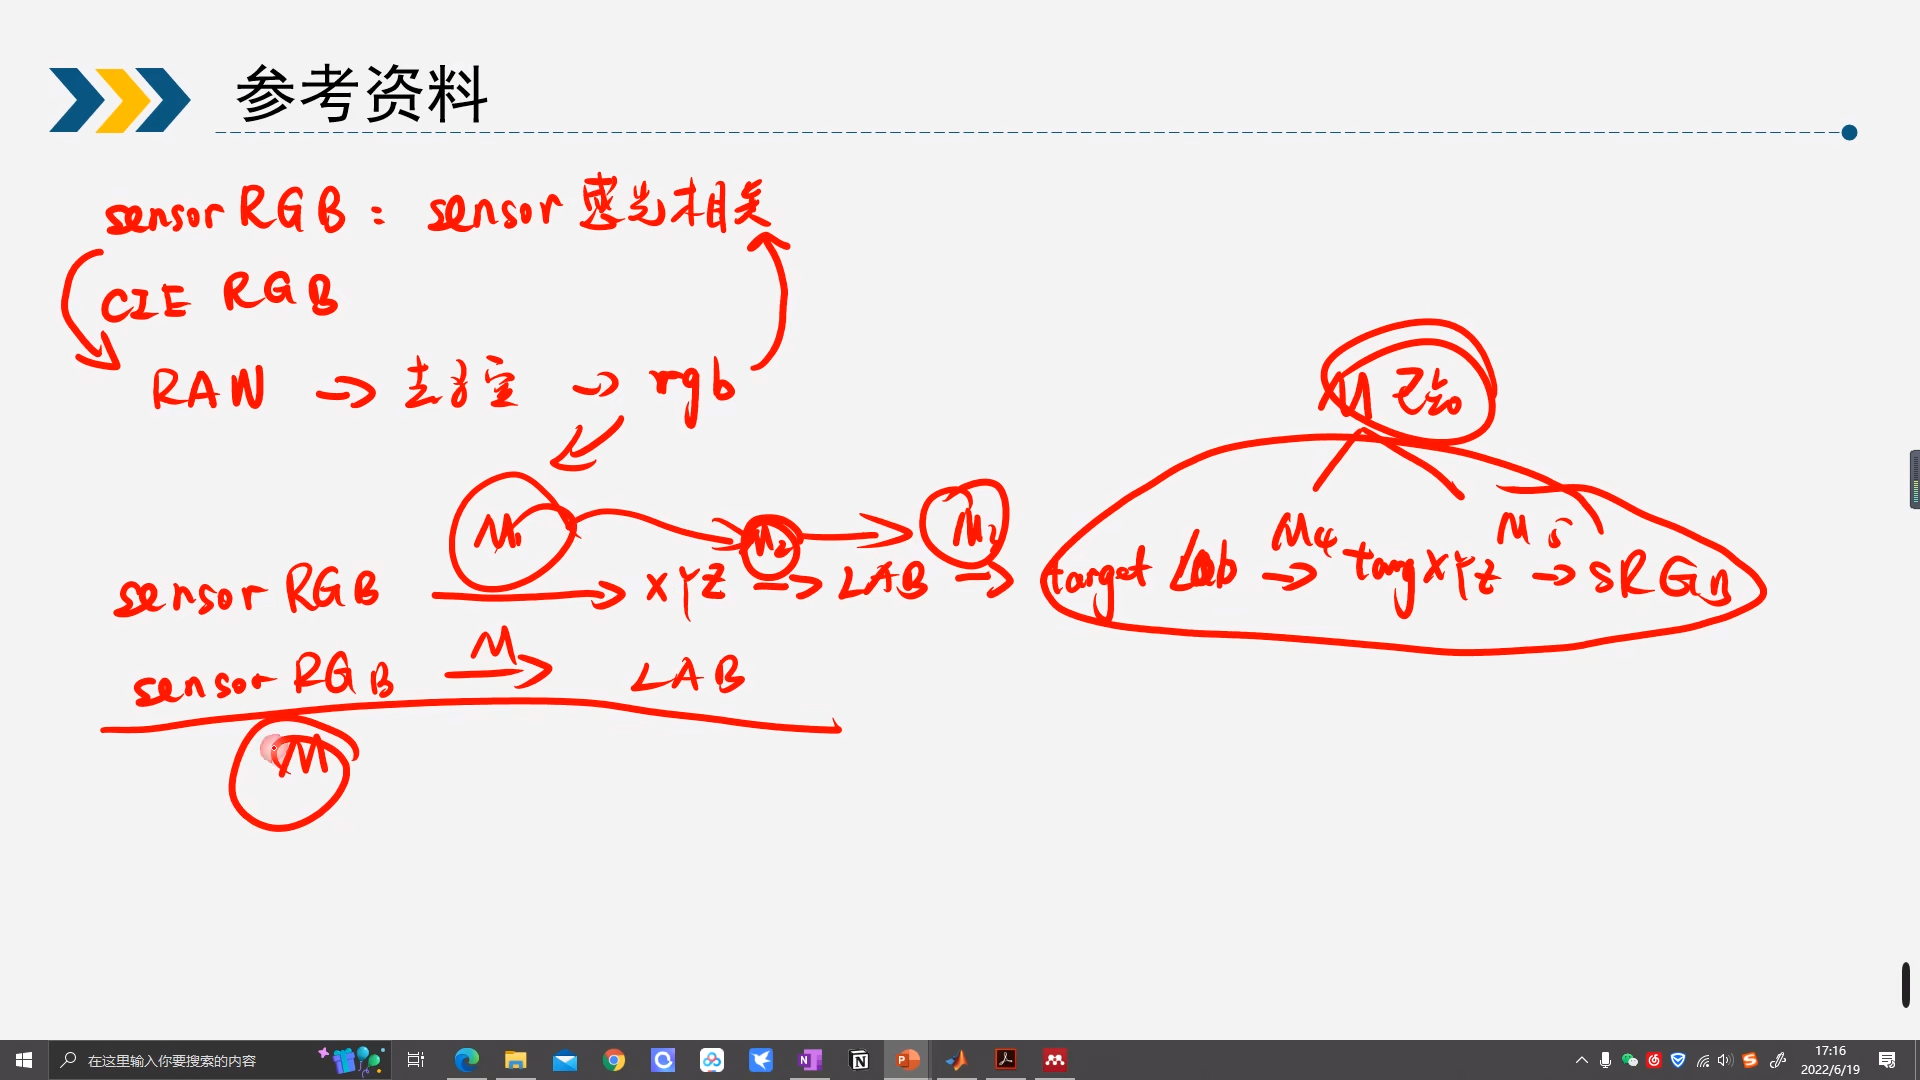 参考资料
sensor RGB : sensor 感光相关
CIE RGB
RAW → 去马赛 → rgb
M 已知
M1 M2 M3 M4 M5
sensor RGB → XYZ → LAB → target Lab → targ XYZ → sRGB
M
sensor RGB → LAB
M
在这里输入你要搜索的内容
17:16
2022/6/19